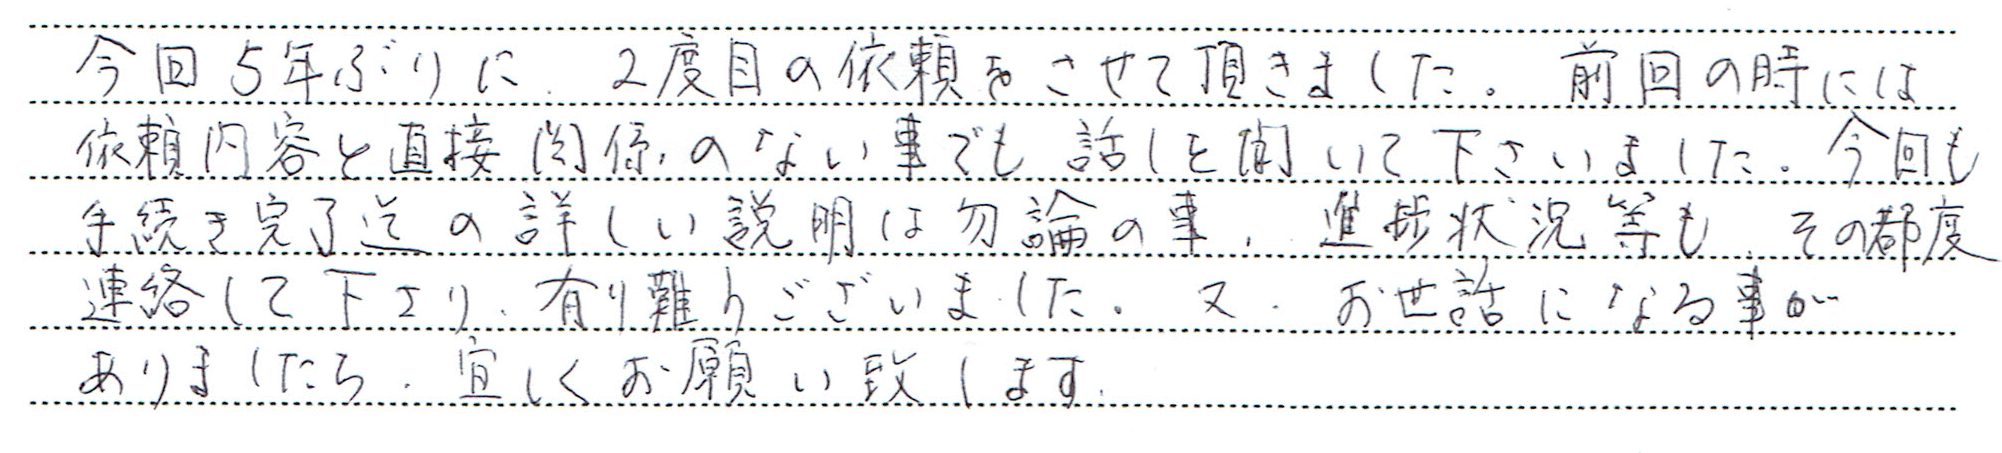 今回5年ぶりに、2度目の依頼をさせて頂きました。前回の時には
依頼内容と直接関係のない事でも話しを聞いて下さいました。今回も
手続き完了迄の詳しい説明は勿論の事、進捗状況等も、その都度
連絡して下さり、有り難うございました。又、お世話になる事が
ありましたら、宜しくお願い致します。